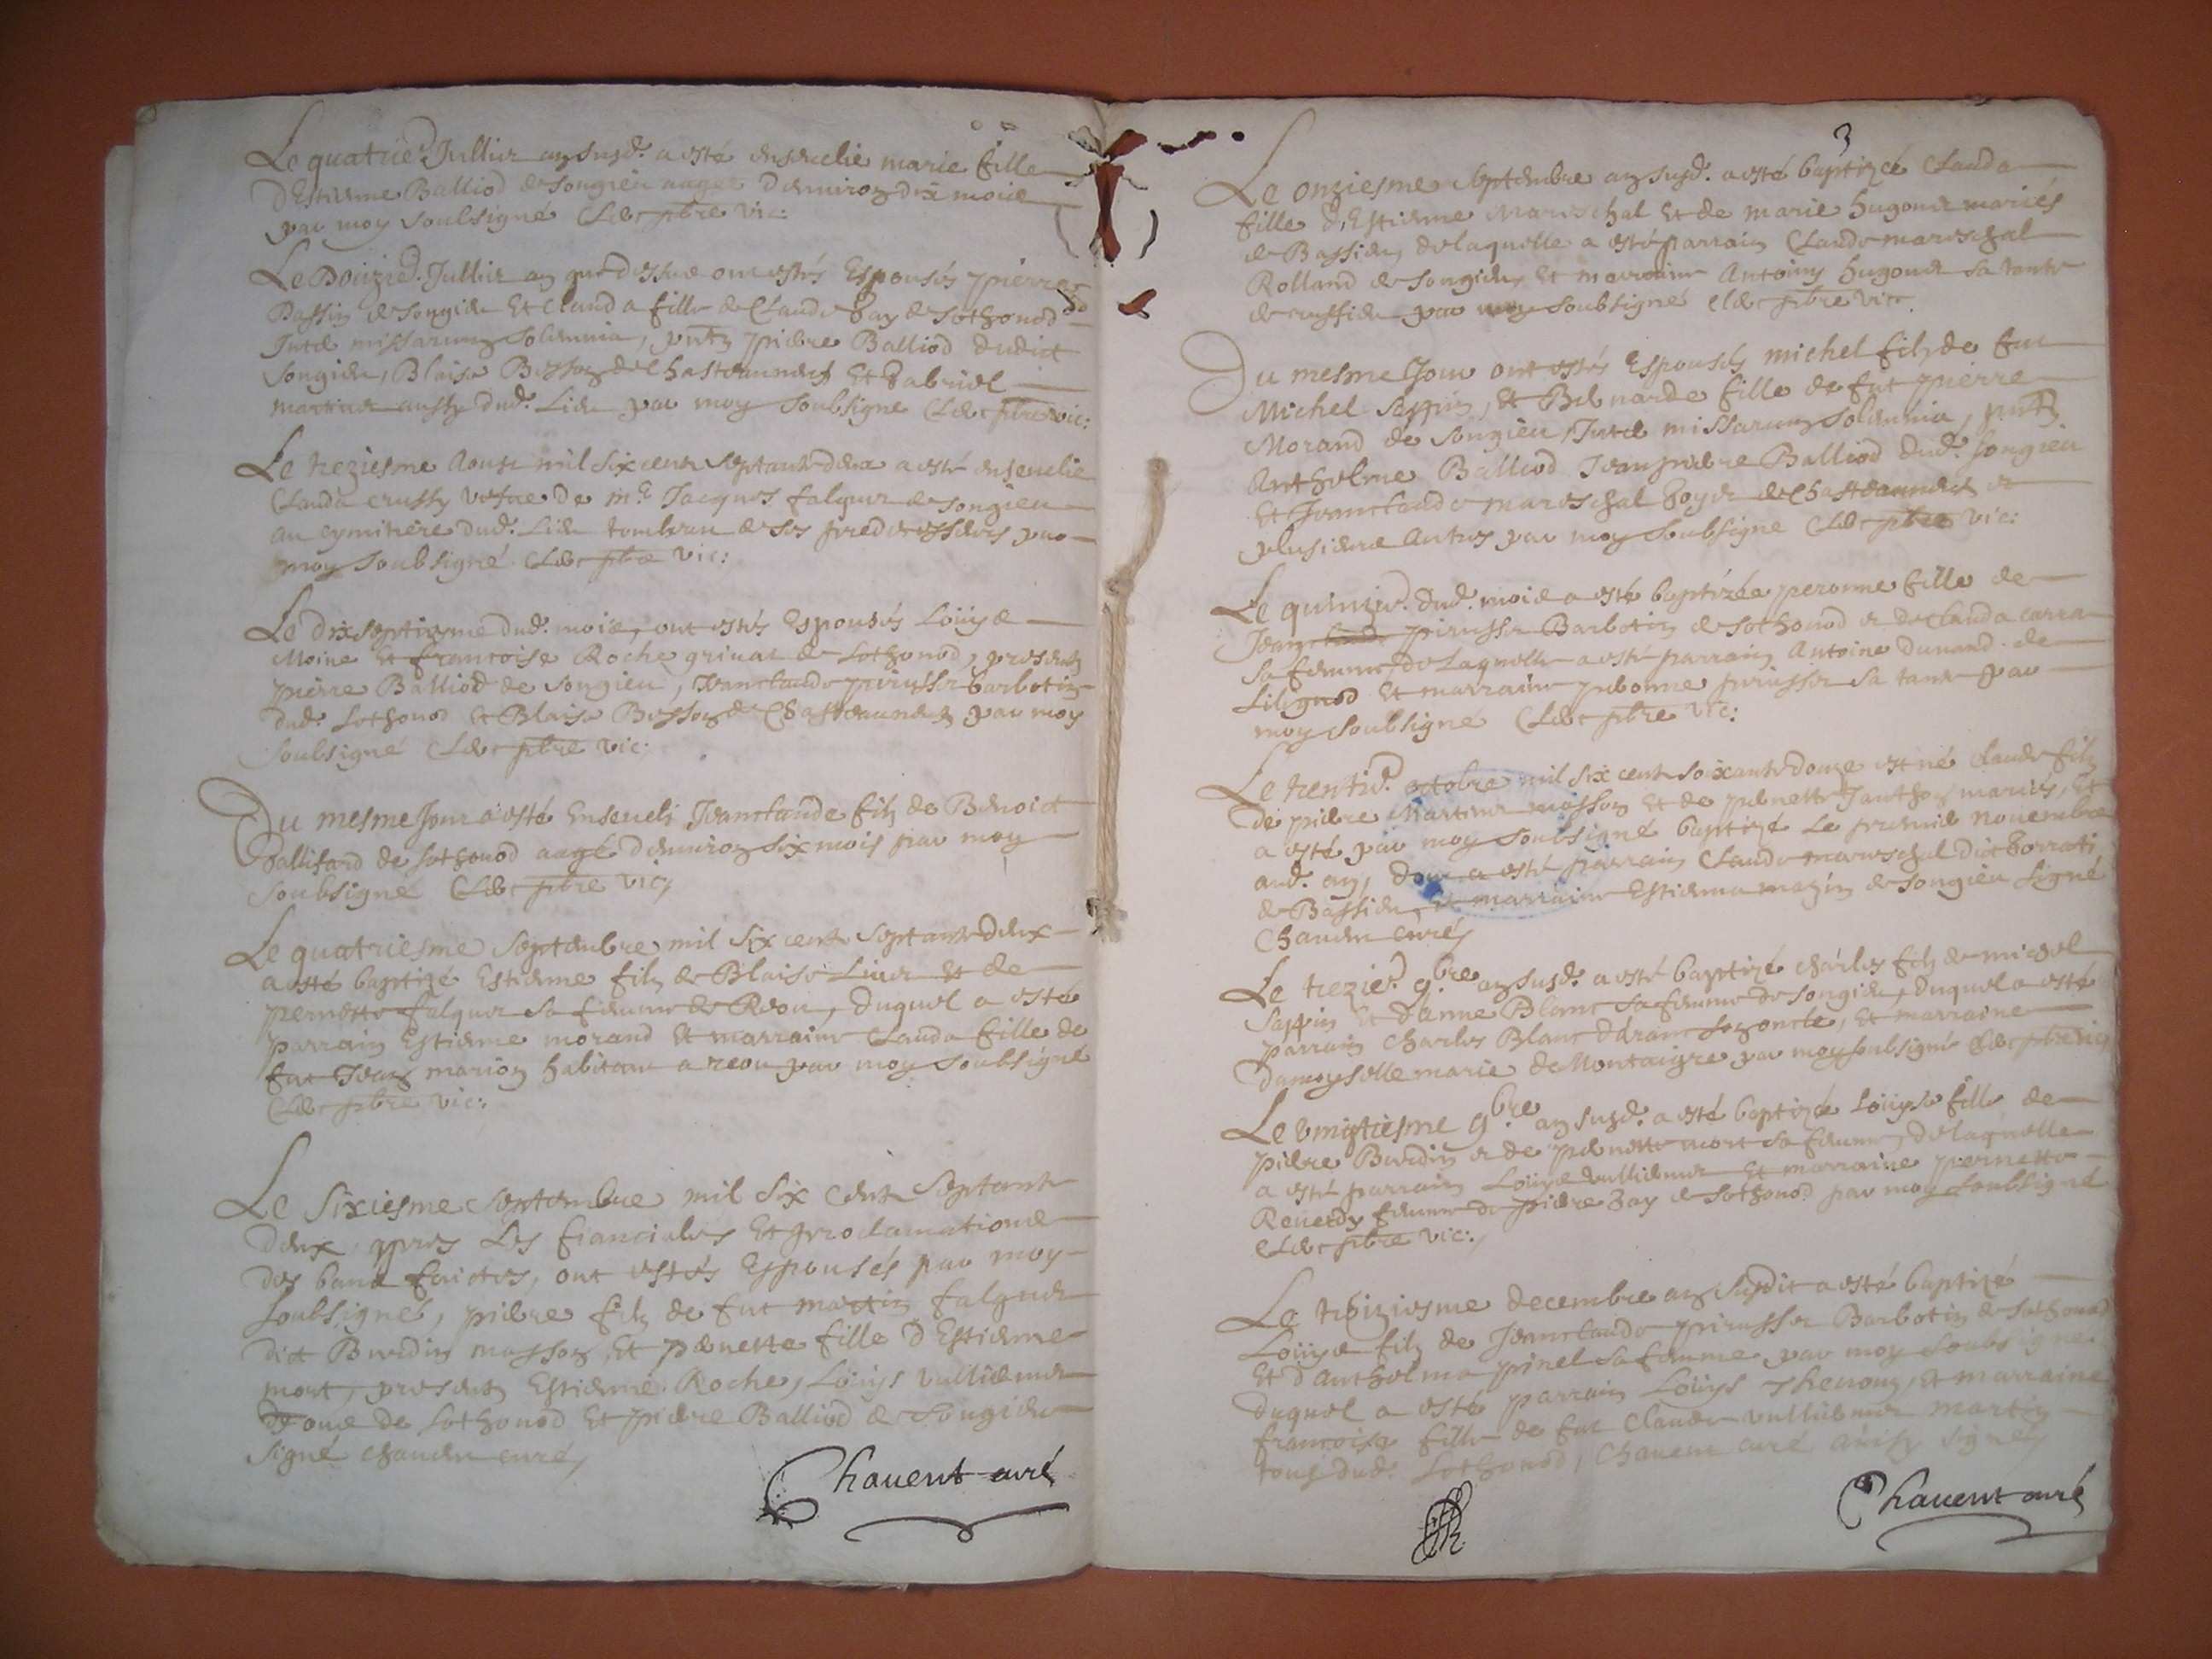 Le quatrie. Jullier an susd. a esté ensevelie marie fille
D'Estienne Balliod de Songieu aagee d'environ dix mois
par moy soubsigné Clerc pbre vic:
Le Douzie. Jullier an que dessus ont estés Espousés pierre
Passin de Songieu Et Clauda fille de Claude Bay de Sothonod
Intra missarum solemnia, pntz pierre Balliod dudict
Songieu, Blaise Besson de Chasteauneuf Et Gabriel
martiner aussy dud. Lieu par moy soubsigne Clerc pbre vic:
Le treziesme Aoust mil six cent septante deux a esté ensevelie
Clauda crussy vefve de me. Jacques falquet de songieu
au cymitiere dud. Lieu tombeau de ses predecesseurs par
moy soubsigné Clerc pbre vic:
Le dixseptiesme dud. mois, ont estés Espousés Loüys
Moine Et francoise Roche grivat de Sothonod, presentz
pierre Balliod de songieu, Jeanclaude perrusset barbotin
dud. Sothonod Et Blaise Besson de Chasteauneuf par moy
soubsigné Clerc pbre vic:
Du mesme Jour a esté Enseveli Jeanclaude filz de Benoict
Pallisard de Sothonod aagé d'environ six mois par moy
soubsigné Clerc pbre vic,
Le quatriesme septembre mil six cent septante deux
a esté baptizé Estienne filz de Blaise Livet Et de
pernette falquet sa femme de Reou, duquel a esté
parrain Estienne morand Et marraine Clauda fille de
fut Jean marion habitant a reou par moy soubsigné
Clerc pbre vic:
Le Sixiesme septembre mil six cent septante
deux, apres Les fiancialles Et proclamations
des bans faictes, ont estés Espousés par moy
soubsigné, pierre filz de fut martin falquet
dict Burdin masson, Et pernette fille d'Estienne
mort, presentz Estienne Roche, Loüys vulliemer
tous de Sothonod Et pierre Balliod de Songieu
Signé Chavent curé,
Chavent curé
3
Le onziesme septembre an susd. a esté baptizée Clauda
fille d'Estienne Mareschal Et de marie hugonet mariés
de Bassieu, de laquelle a esté parrain Claude mareschal
Rolland de Songieu Et marraine Antoiny hugonet sa tante
de cussieu par moy soubsigné Clerc pbre vic.
Du mesme Jour ont estés Espousés michel filz de fut
Michel Sappin, Et Bernarde fille de fut pierre
Morand de Songieu, Intra missarum solemnia, pntz
Anthelme Balliod Jean pierre Balliod dud. songieu
Et Jeanclaude mareschal Goyet de Chasteauneuf et
plusieurs Autres par moy soubsigné Clerc pbre vic:
Le quinzie. dud. mois a esté baptizée peronne fille de
Jean claude perrusset Barbotin de Sothonod et de Clauda carra
sa femme, de Laquelle a esté parrain Antoine Dunand de
Lilignod Et marraine peronne perrusset sa tante par
moy soubsigné Clerc pbre vic:
Le trentie. octobre mil six cent soixante douze est né claude filz
de pierre Martiner masson Et de pernette Janthon mariés, Et
a esté par moy soubsigné baptizé Le premier novembre
aud. an, dont a esté parrain Claude mareschal dict Gorrati
de Bassieu, et marraine Estienna mazin de songieu signé
Chavent curé,
Le trezie. 9.bre an susd. a esté baptizé charles filz de michel
Sappin Et d'anne Blanc sa femme de songieu, duquel a esté
parrain charles Blanc d'Aranc son oncle, Et marraine
Damoyselle marie de Montaigre par moy soubsigné Clerc pbre vic,
Le vingtiesme 9.bre an susd. a esté baptizée Loüyse fille de
pierre Burdin et de pernette mort sa femme, de laquelle
a esté parrain Loüys vulliemer Et marraine pernette
Reverdy femme de pierre Bay de Sothonod par moy soubsigné
Clerc pbre vic:,
Le troiziesme decembre an susdit a esté baptizé
Loüys filz de Jeanclaude perrusset Barbotin de Sothonod
Et d'anthelma pinel sa femme par moy soubsigné
duquel a esté parrain Loüys Thevenin, Et marraine
francoise fille de fut Claude vulliemer martin
tous dud. Sothonod, Chavent curé ainsy signé,
Chavent curé